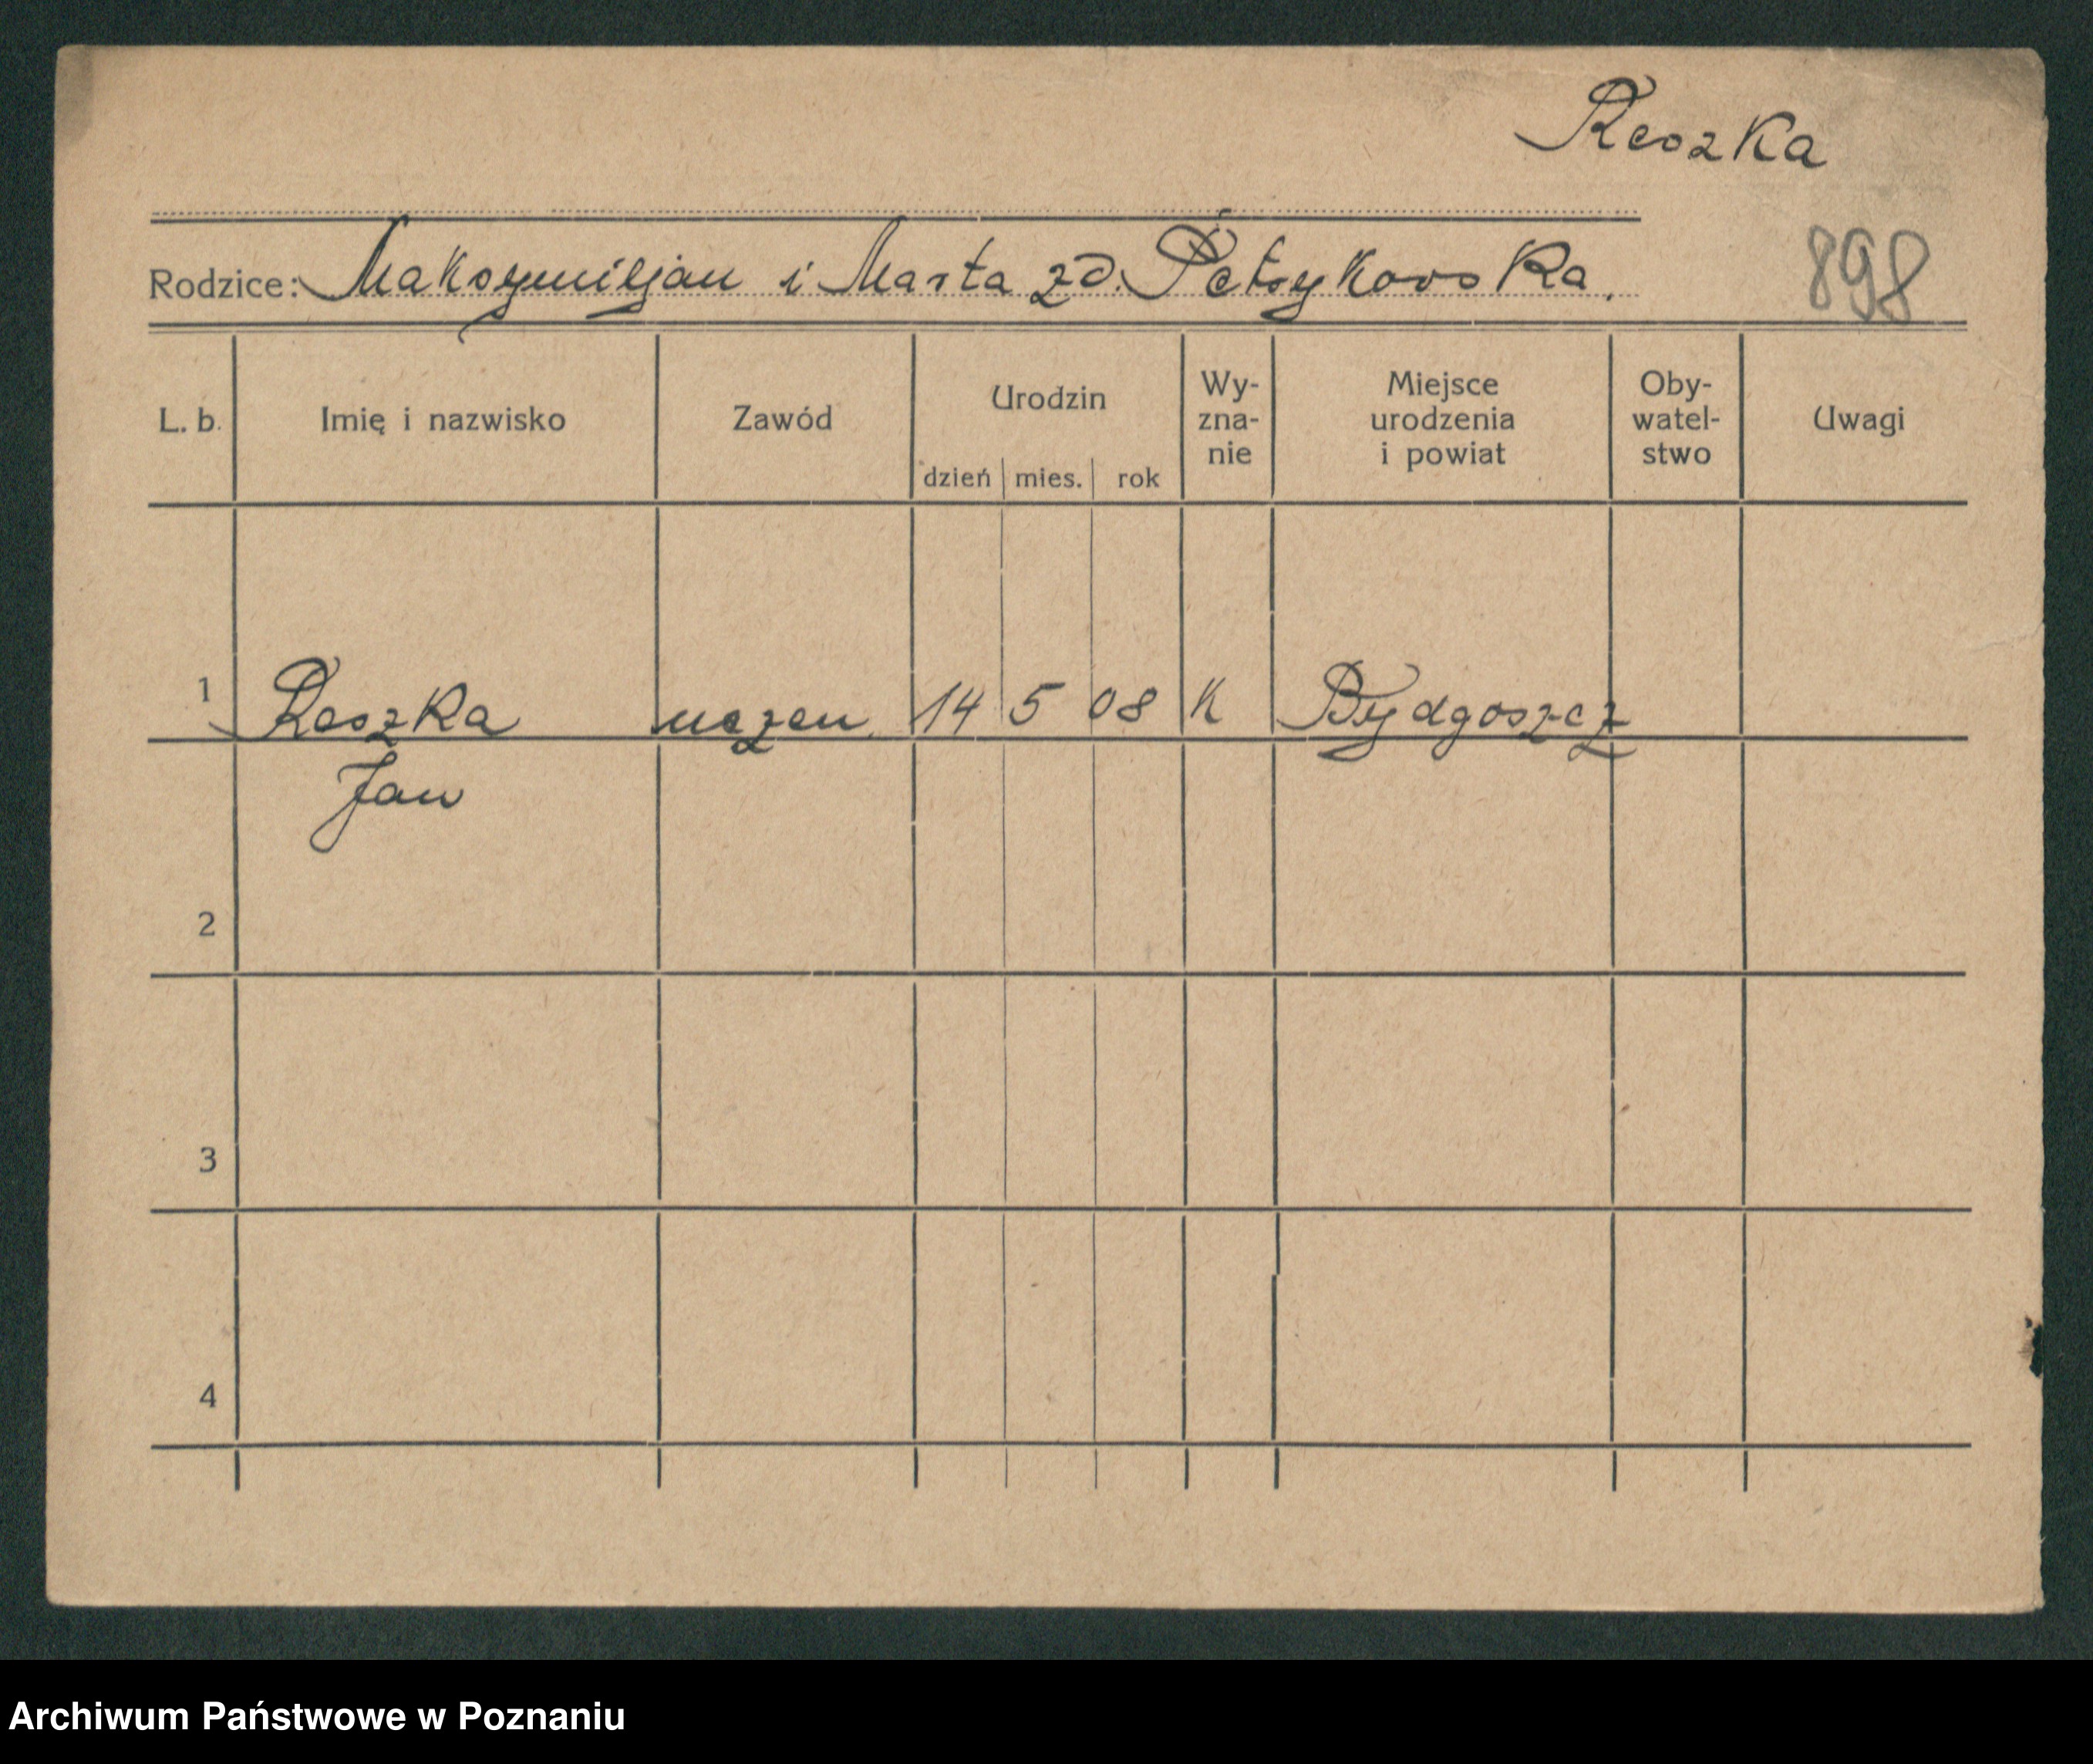 Reszka
Rodzice: Maksymiljan i Marta zd. Petrykowska.
898
L. b. Imię i nazwisko Zawód Urodzin dzień mies. rok Wy-zna-nie Miejsce urodzenia i powiat Oby-watel-stwo Uwagi
1 Reszka uczen 14 5 08 K Bydgoszcz
Jan
2
3
4
Archiwum Państwowe w Poznaniu